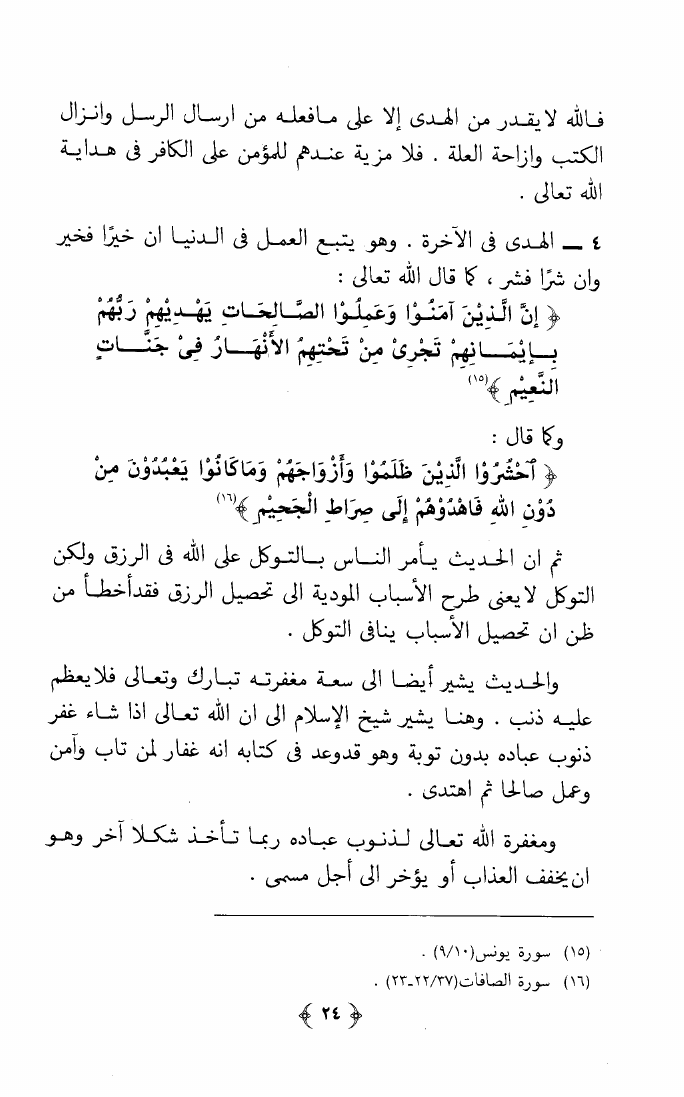 فالله لا يقدر من الهدى إلا على مافعله من ارسال الرسل وانزال
الكتب وازاحة العلة . فلا مزية عندهم للمؤمن على الكافر فى هداية
الله تعالى .
٤ ــ الهدى فى الآخرة . وهو يتبع العمل فى الدنيا ان خيرًا فخير
وان شرًا فشر ، كما قال الله تعالى :
﴿ إِنَّ الَّذِيْنَ آمَنُوْا وَعَمِلُوْا الصَّالِحَاتِ يَهْدِيْهِمْ رَبُّهُمْ
بِإِيْمَانِهِمْ تَجْرِىْ مِنْ تَحْتِهِمُ الأَنْهَارُ فِىْ جَنَّاتٍ
النَّعِيْمِ ﴾(١٥)
وكما قال :
﴿ اَحْشُرُوْا الَّذِيْنَ ظَلَمُوْا وَأَزْوَاجَهُمْ وَمَاكَانُوْا يَعْبُدُوْنَ مِنْ
دُوْنِ اللهِ فَاهْدُوْهُمْ إِلَى صِرَاطِ الْجَحِيْمِ ﴾(١٦)
ثم ان الحديث يأمر الناس بالتوكل على الله فى الرزق ولكن
التوكل لا يعنى طرح الأسباب المودية الى تحصيل الرزق فقدأخطأ من
ظن ان تحصيل الأسباب ينافى التوكل .
والحديث يشير أيضا الى سعة مغفرته تبارك وتعالى فلايعظم
عليه ذنب . وهنا يشير شيخ الإسلام الى ان الله تعالى اذا شاء غفر
ذنوب عباده بدون توبة وهو قدوعد فى كتابه انه غفار لمن تاب وآمن
وعمل صالحا ثم اهتدى .
ومغفرة الله تعالى لذنوب عباده ربما تأخذ شكلا آخر وهو
ان يخفف العذاب أو يؤخر الى أجل مسمى .
(١٥) سورة يونس(٩/١٠) .
(١٦) سورة الصافات(٢٢/٣٧ـ٢٣) .
﴿ ٢٤ ﴾